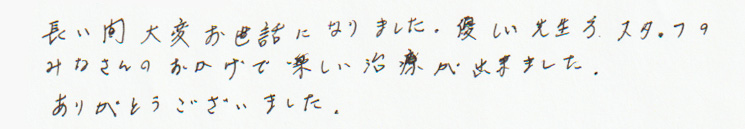 長い間大変お世話になりました。優しい先生方、スタッフの
みなさんのおかげで楽しい治療が出来ました。
ありがとうございました。